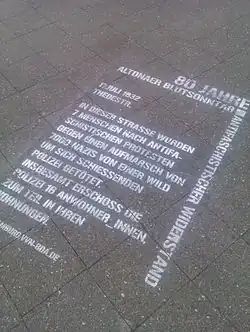 80 JAHRE
ALTONAER BLUTSONNTAG
17. JULI 1932
THEDESTR.
IN DIESER STRASSE WURDEN
2 MENSCHEN NACH ANTIFA-
SCHISTISCHEN PROTESTEN
GEGEN EINEN AUFMARSCH VON
7000 NAZIS VON EINER WILD
UM SICH SCHIESSENDEN
POLIZEI GETÖTET.
INSGESAMT ERSCHOSS DIE
POLIZEI 16 ANWOHNER_INNEN,
ZUM TEIL IN IHREN
WOHNUNGEN.
ANTIFASCHISTISCHER WIDERSTAND